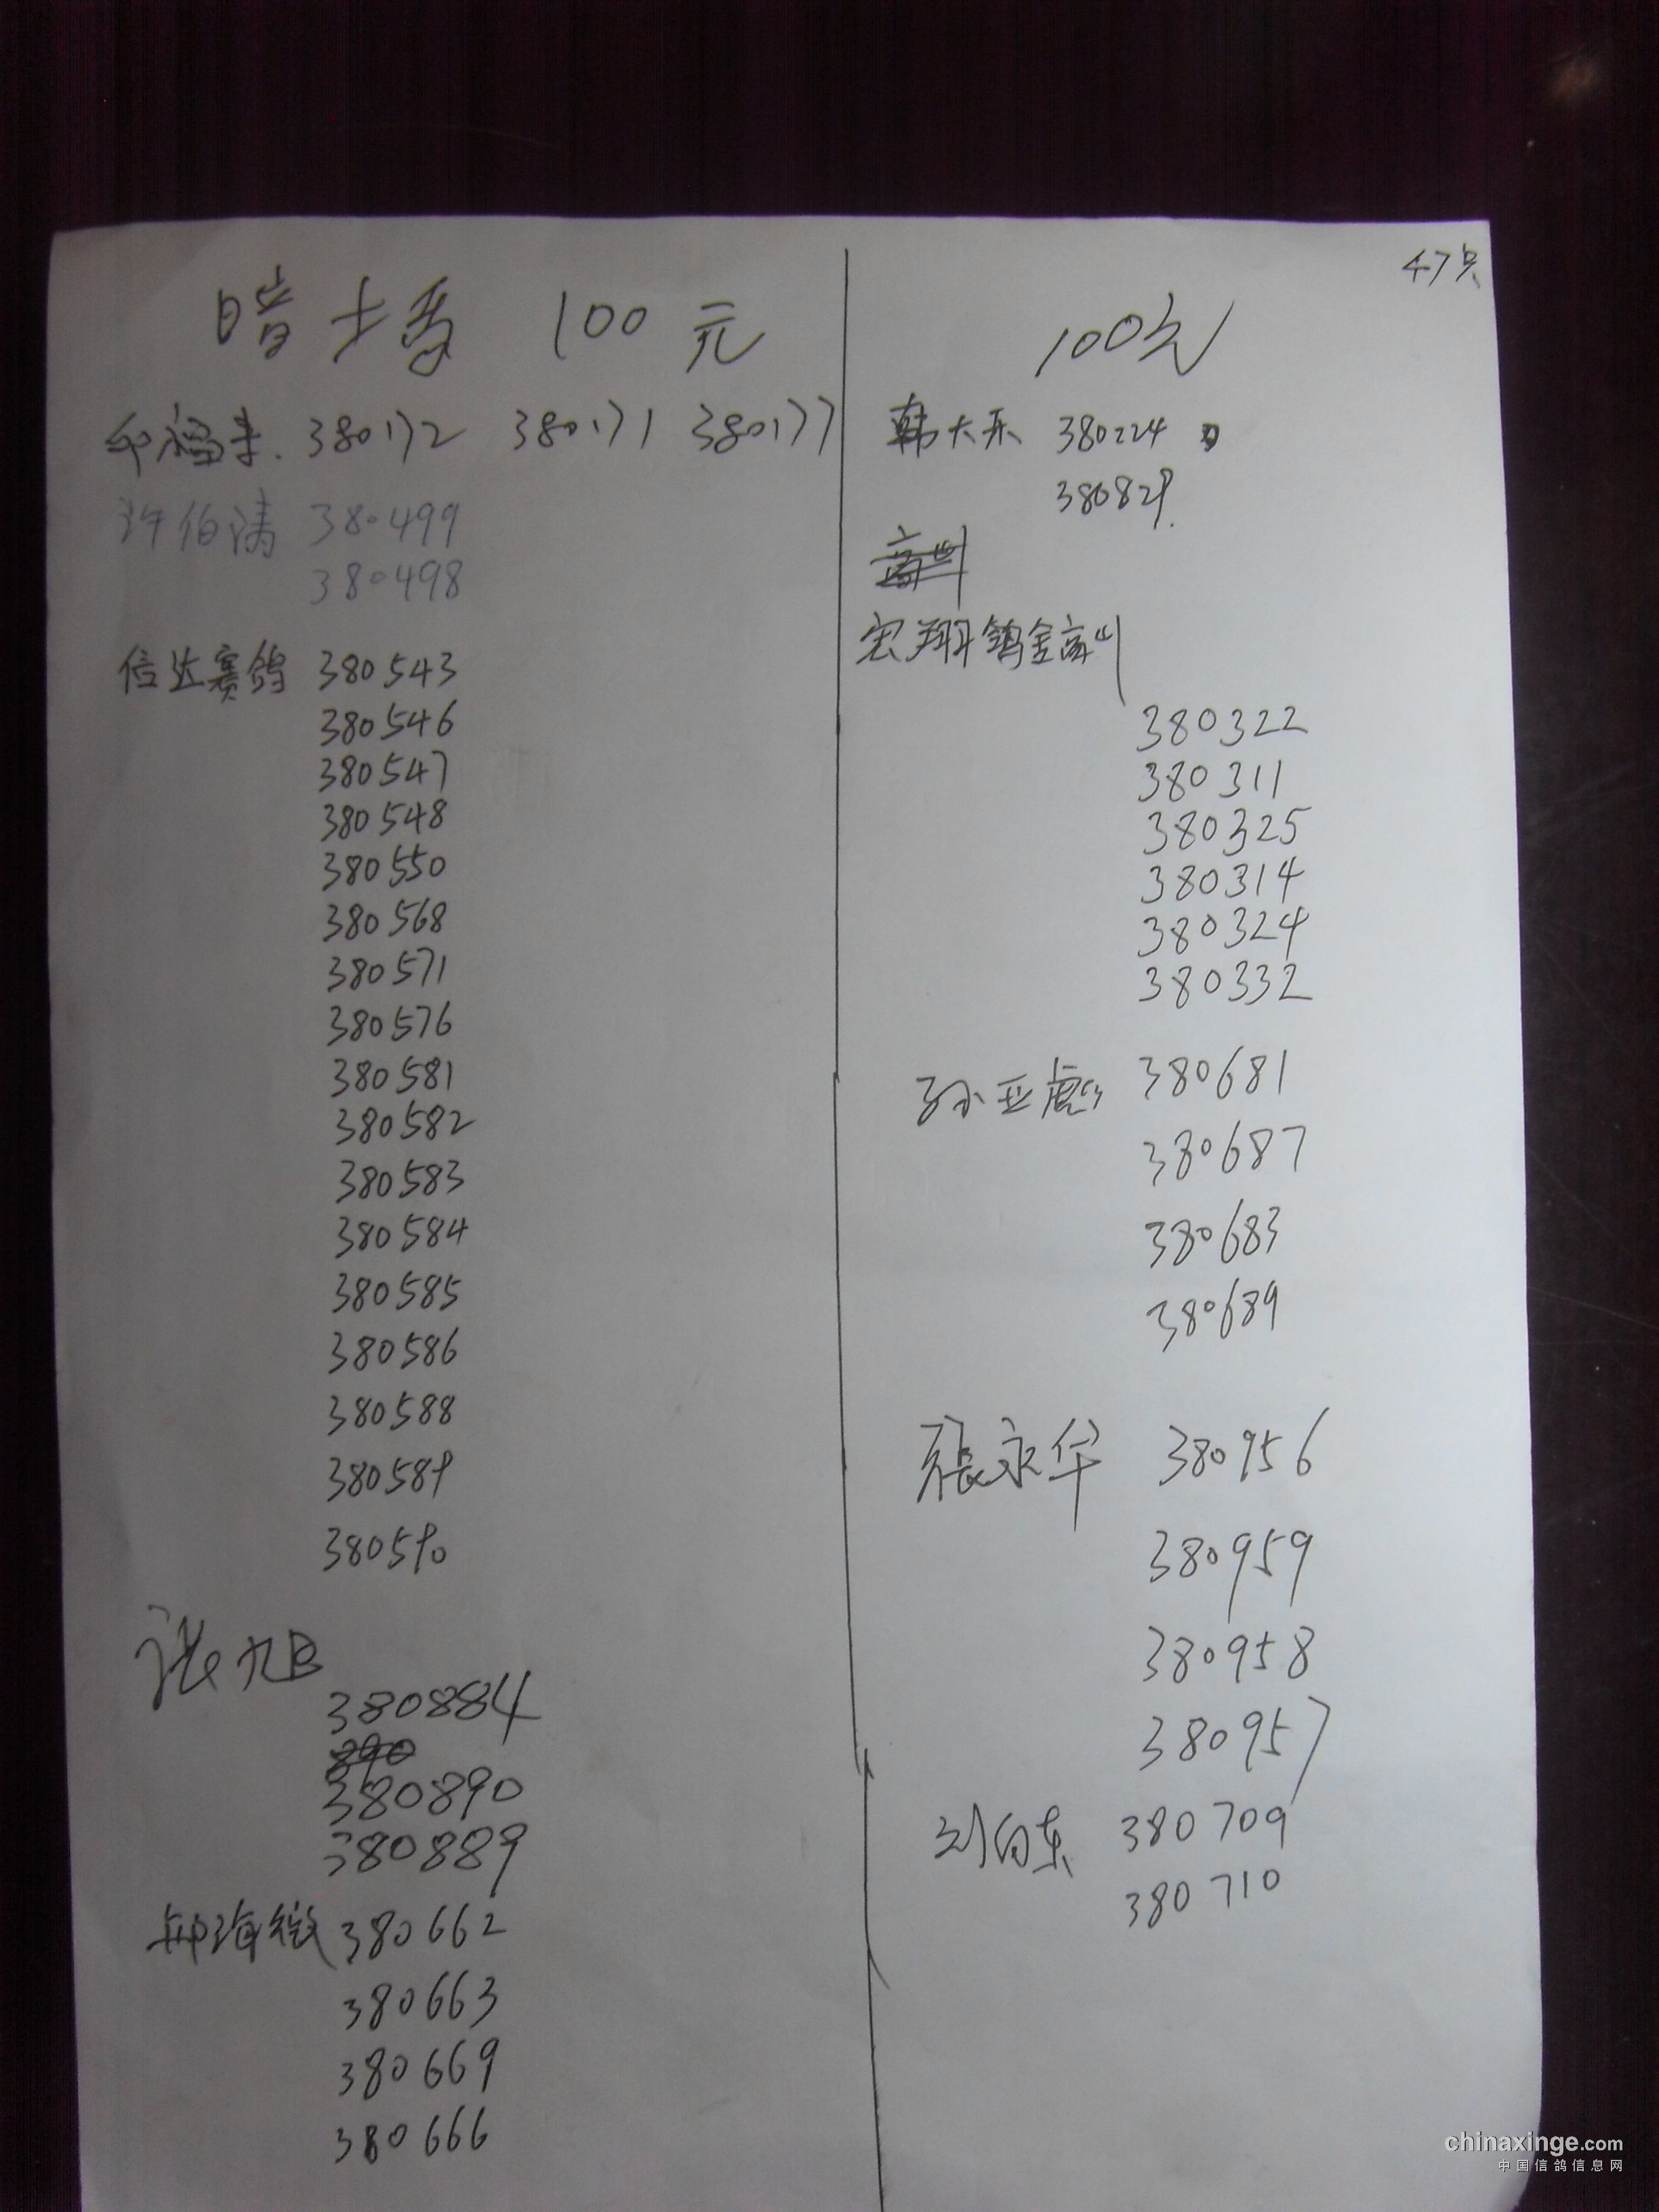 暗 100 元
380172 380171 380177
许伯涛 380499
380498
信达赛鸽 380543
380546
380547
380548
380550
380568
380571
380576
380581
380582
380583
380584
380585
380586
380588
380589
380590
张旭
380884
890
380890
380889
海微 380662
380663
380669
380666
47只
100元
韩大乐 380224
380829
高川
宏翔鸽舍高川
380322
380311
380325
380314
380324
380332
孙亚彪 380681
380687
380683
380689
張永华 380956
380959
380958
380957
刘向东 380709
380710
chinaxinge.com
中国信鸽信息网